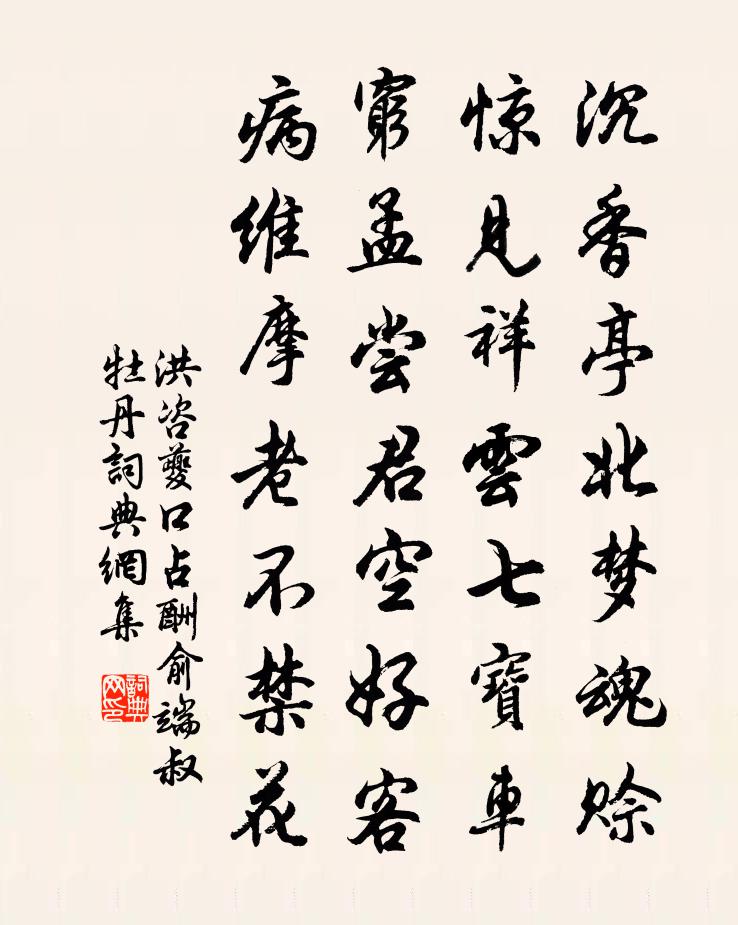 沉香亭北梦魂赊
惊见祥雲七寶車
窮孟尝君空好客
病维摩老不禁花
洪咨夔口占酬俞端叔
牡丹詞典網集
詞典网印